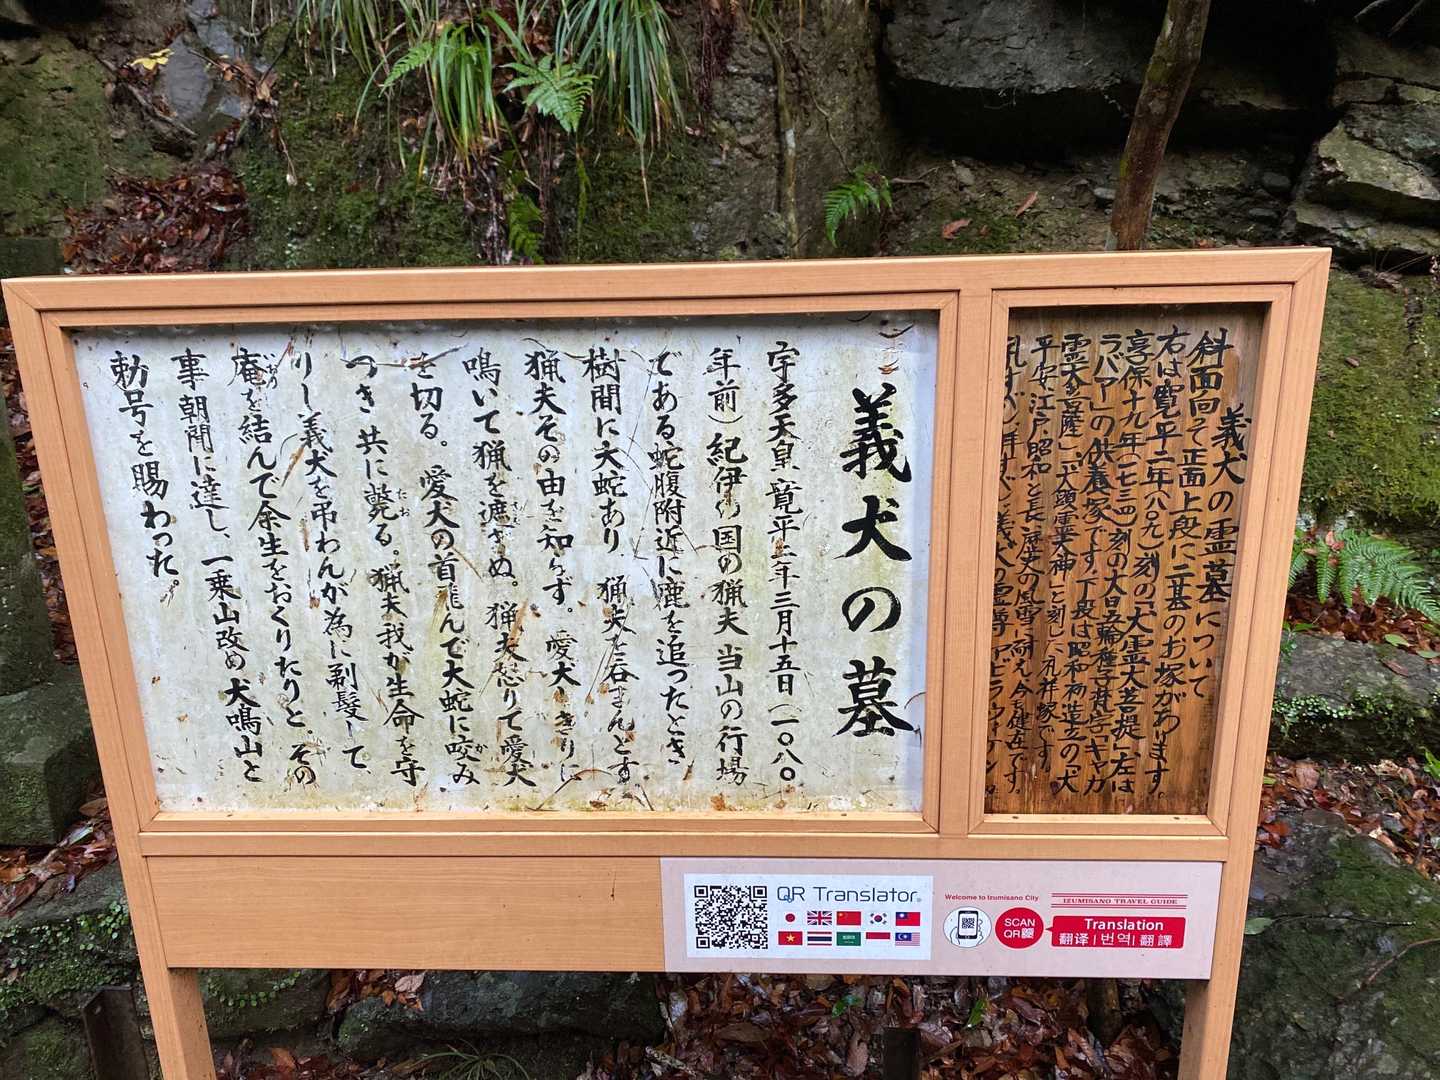 義犬の霊墓について
斜面向って正面上段に二基のお塚があります。
右は寛平二年(八〇九)刻の「犬霊大菩提」左は
享保十九年(一七三四)刻の大日五輪種子梵字「キャカ
ラバア」の供養塚です。下段は昭和初造立の「犬
「犬頭霊大神」と刻し、礼拝塚です。
平安、江戸、昭和と長い歴史の風雪に耐え今も健在です。
義犬の墓
宇多天皇寛平二年三月十五日(一〇八〇
年前)紀伊の国の猟夫当山の行場
である蛇腹附近に鹿を追ったとき
樹間に大蛇あり 猟夫を呑まんとす
猟夫その由を知らず。愛犬しきりに
鳴いて猟を遮ぎぬ。猟夫怒りて愛犬
を切る。愛犬の首龍んで大蛇に咬み
つき共に斃る。猟夫我が生命を守
りし義犬を弔わんが為に剃髪して、
庵を結んで余生をおくりたりと。その
事朝聞に達し、一乗山改め犬鳴山と
勅号を賜わった。
QR Translator
Welcome to Izumisano City
IZUMISANO TRAVEL GUIDE
SCAN
QR
Translation
翻译|번역|翻譯